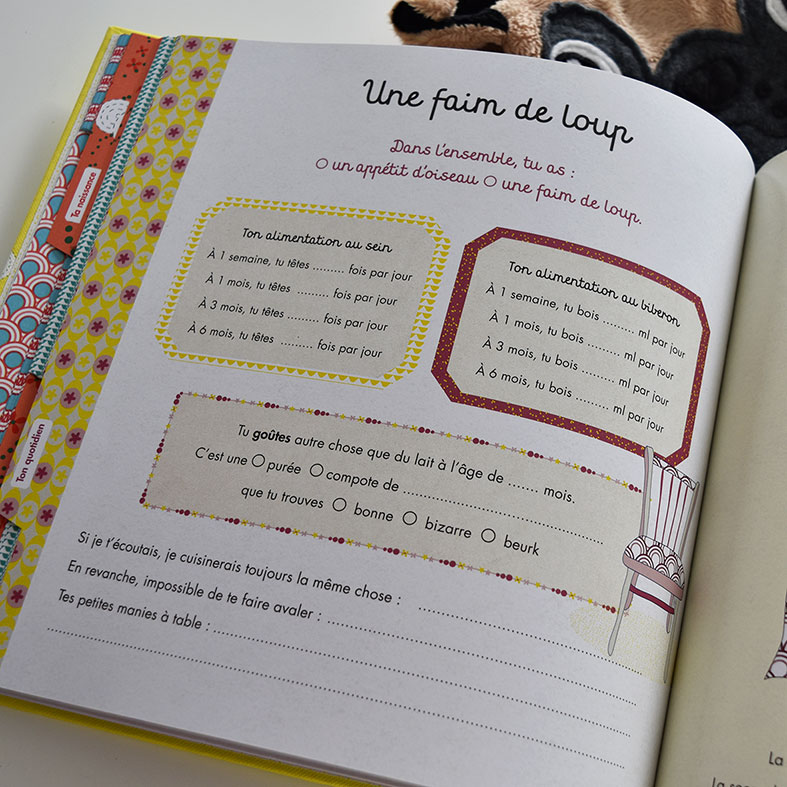 Une faim de loup
Dans l'ensemble, tu as :
O un appétit d'oiseau O une faim de loup.
Ton alimentation au sein
À 1 semaine, tu têtes ......... fois par jour
À 1 mois, tu têtes ......... fois par jour
À 3 mois, tu têtes ......... fois par jour
À 6 mois, tu têtes ......... fois par jour
Ton alimentation au biberon
À 1 semaine, tu bois ......... ml par jour
À 1 mois, tu bois ......... ml par jour
À 3 mois, tu bois ......... ml par jour
À 6 mois, tu bois ......... ml par jour
Tu goûtes autre chose que du lait à l'âge de ....... mois.
C'est une O purée O compote de ...........................................
que tu trouves O bonne O bizarre O beurk
Si je t'écoutais, je cuisinerais toujours la même chose : ...........................................
En revanche, impossible de te faire avaler : ...........................................
Tes petites manies à table : ...........................................
Ta naissance
Ton quotidien
La